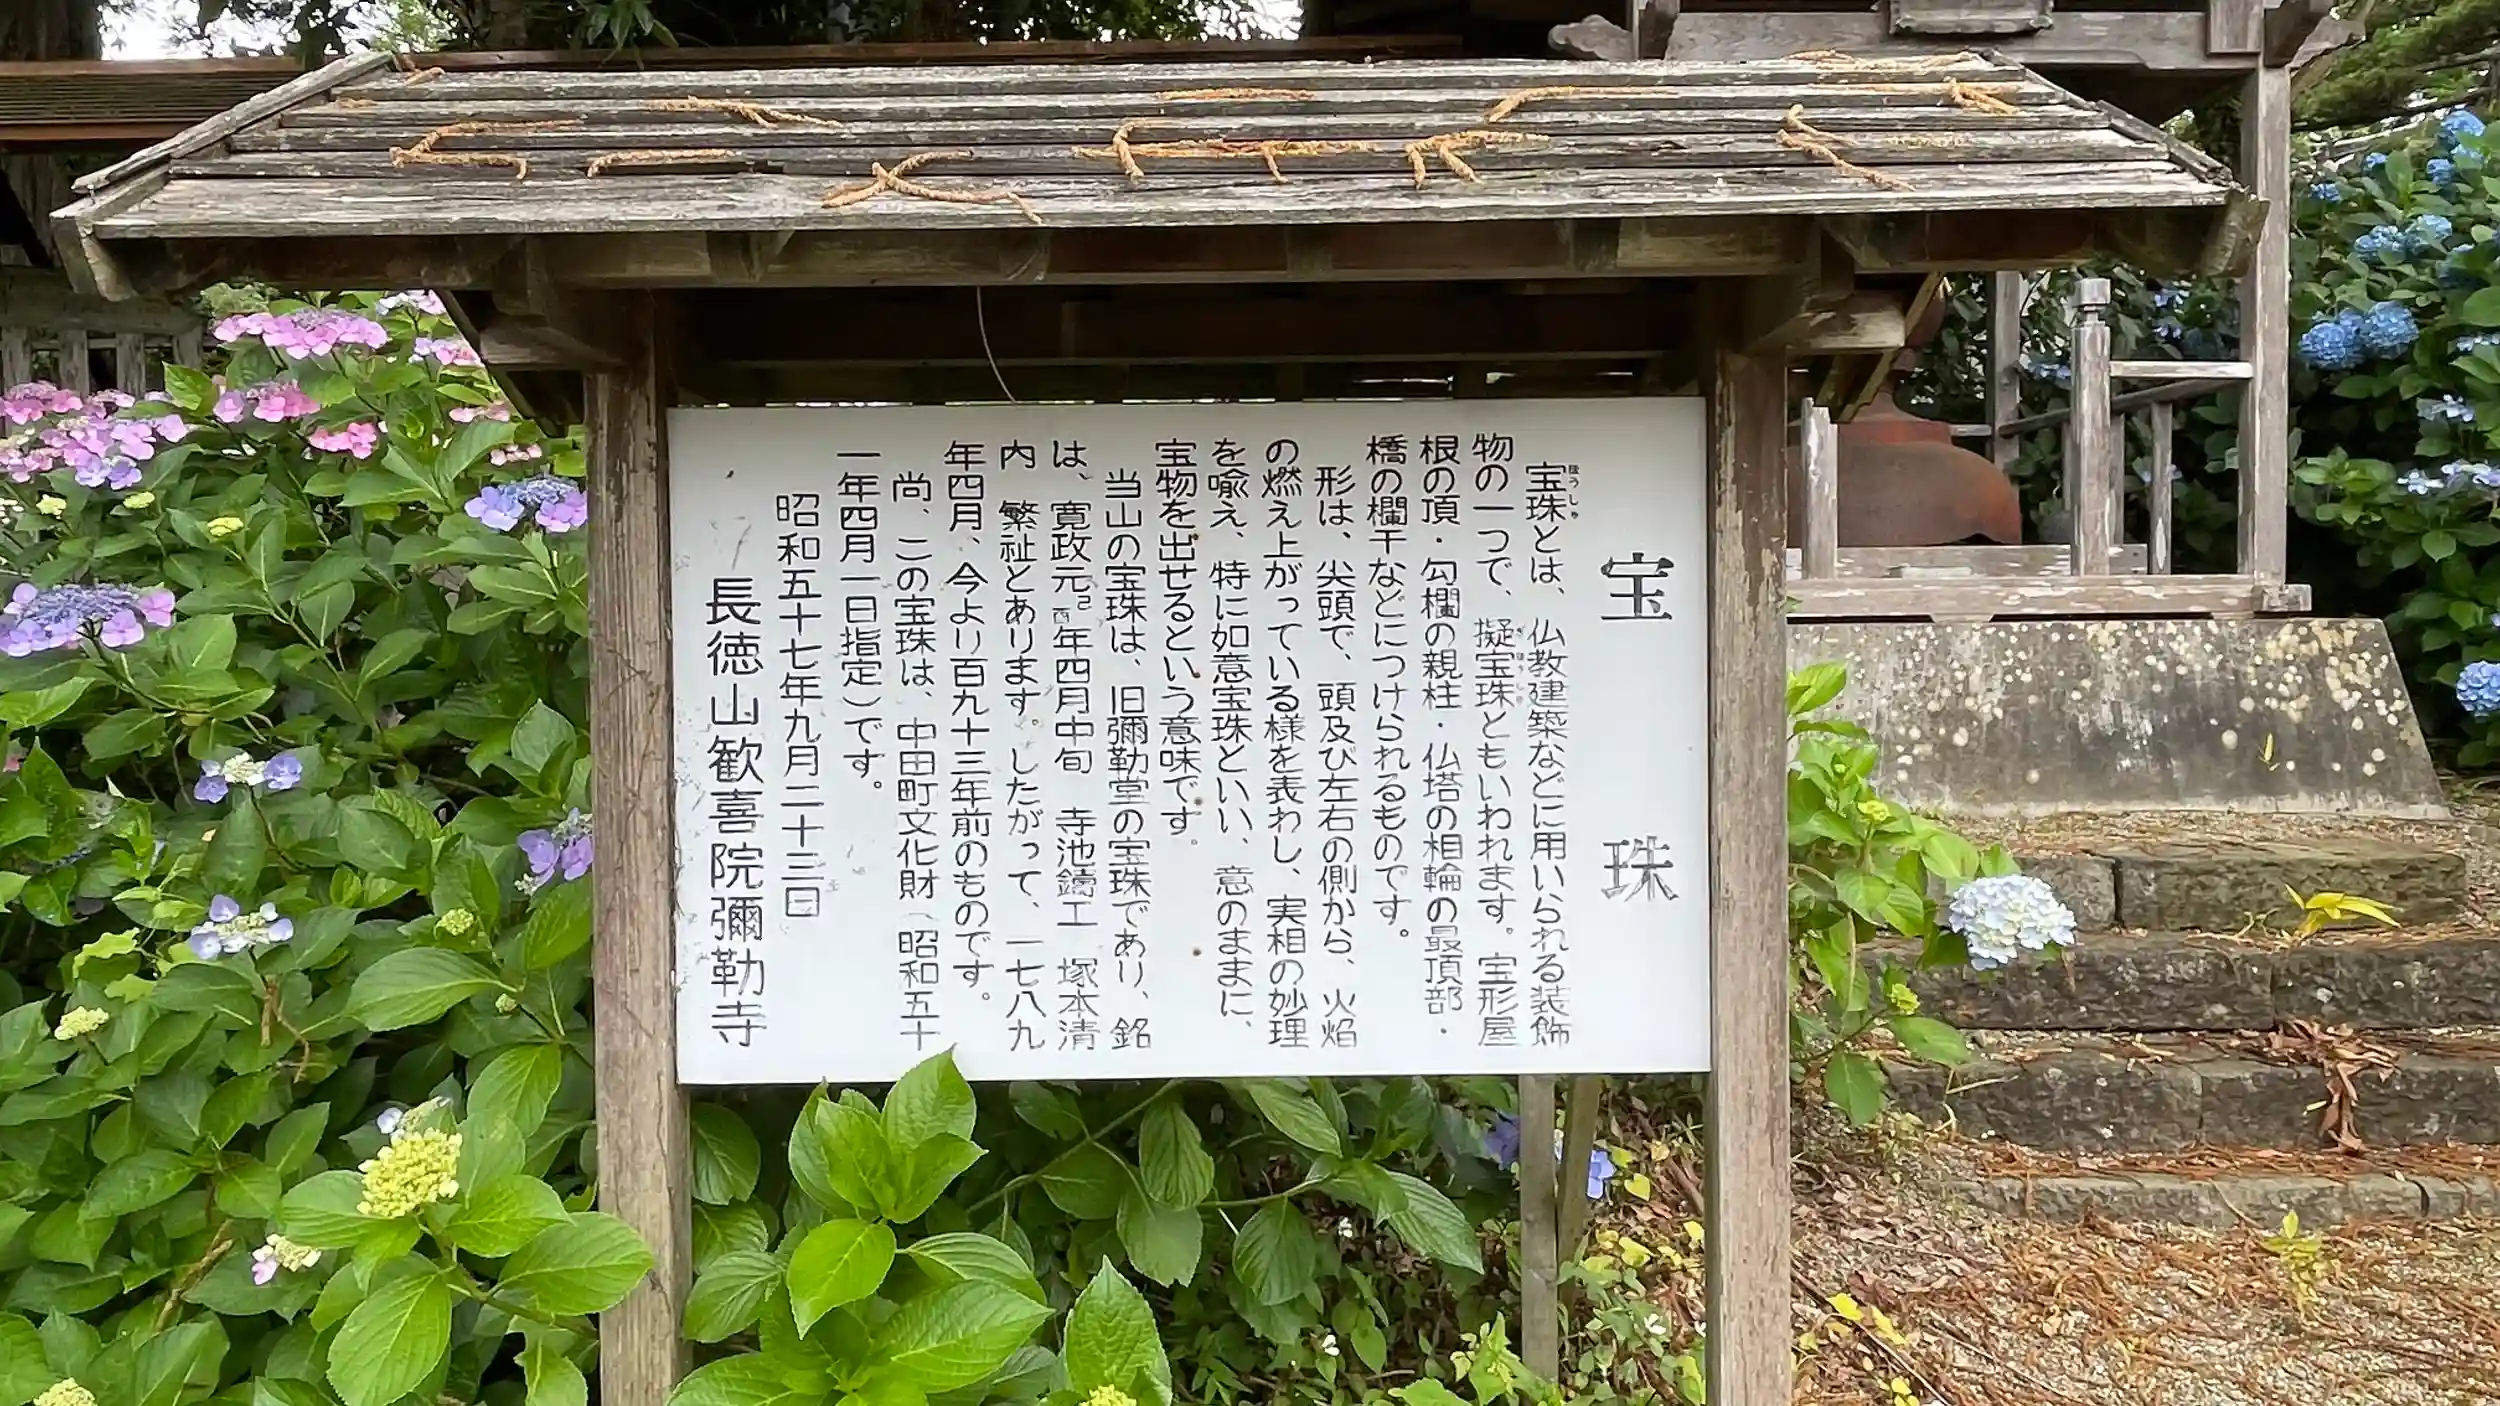 宝珠
宝珠とは、仏教建築などに用いられる装飾
物の一つで、擬宝珠ともいわれます。宝形屋
根の頂・勾欄の親柱・仏塔の相輪の最頂部・
橋の欄干などにつけられるものです。
形は、尖頭で、頭及び左右の側から、火焰
の燃え上がっている様を表わし、実相の妙理
を喩え、特に如意宝珠といい、意のままに、
宝物を出せるという意味です。
当山の宝珠は、旧彌勒堂の宝珠であり、銘
は、寛政元己酉年四月中旬 寺池鑄工 塚本清
内 繁祉とあります。したがって、一七八九
年四月、今より百九十三年前のものです。
尚、この宝珠は、中田町文化財（昭和五十
一年四月一日指定）です。
昭和五十七年九月二十三日
長徳山歓喜院彌勒寺